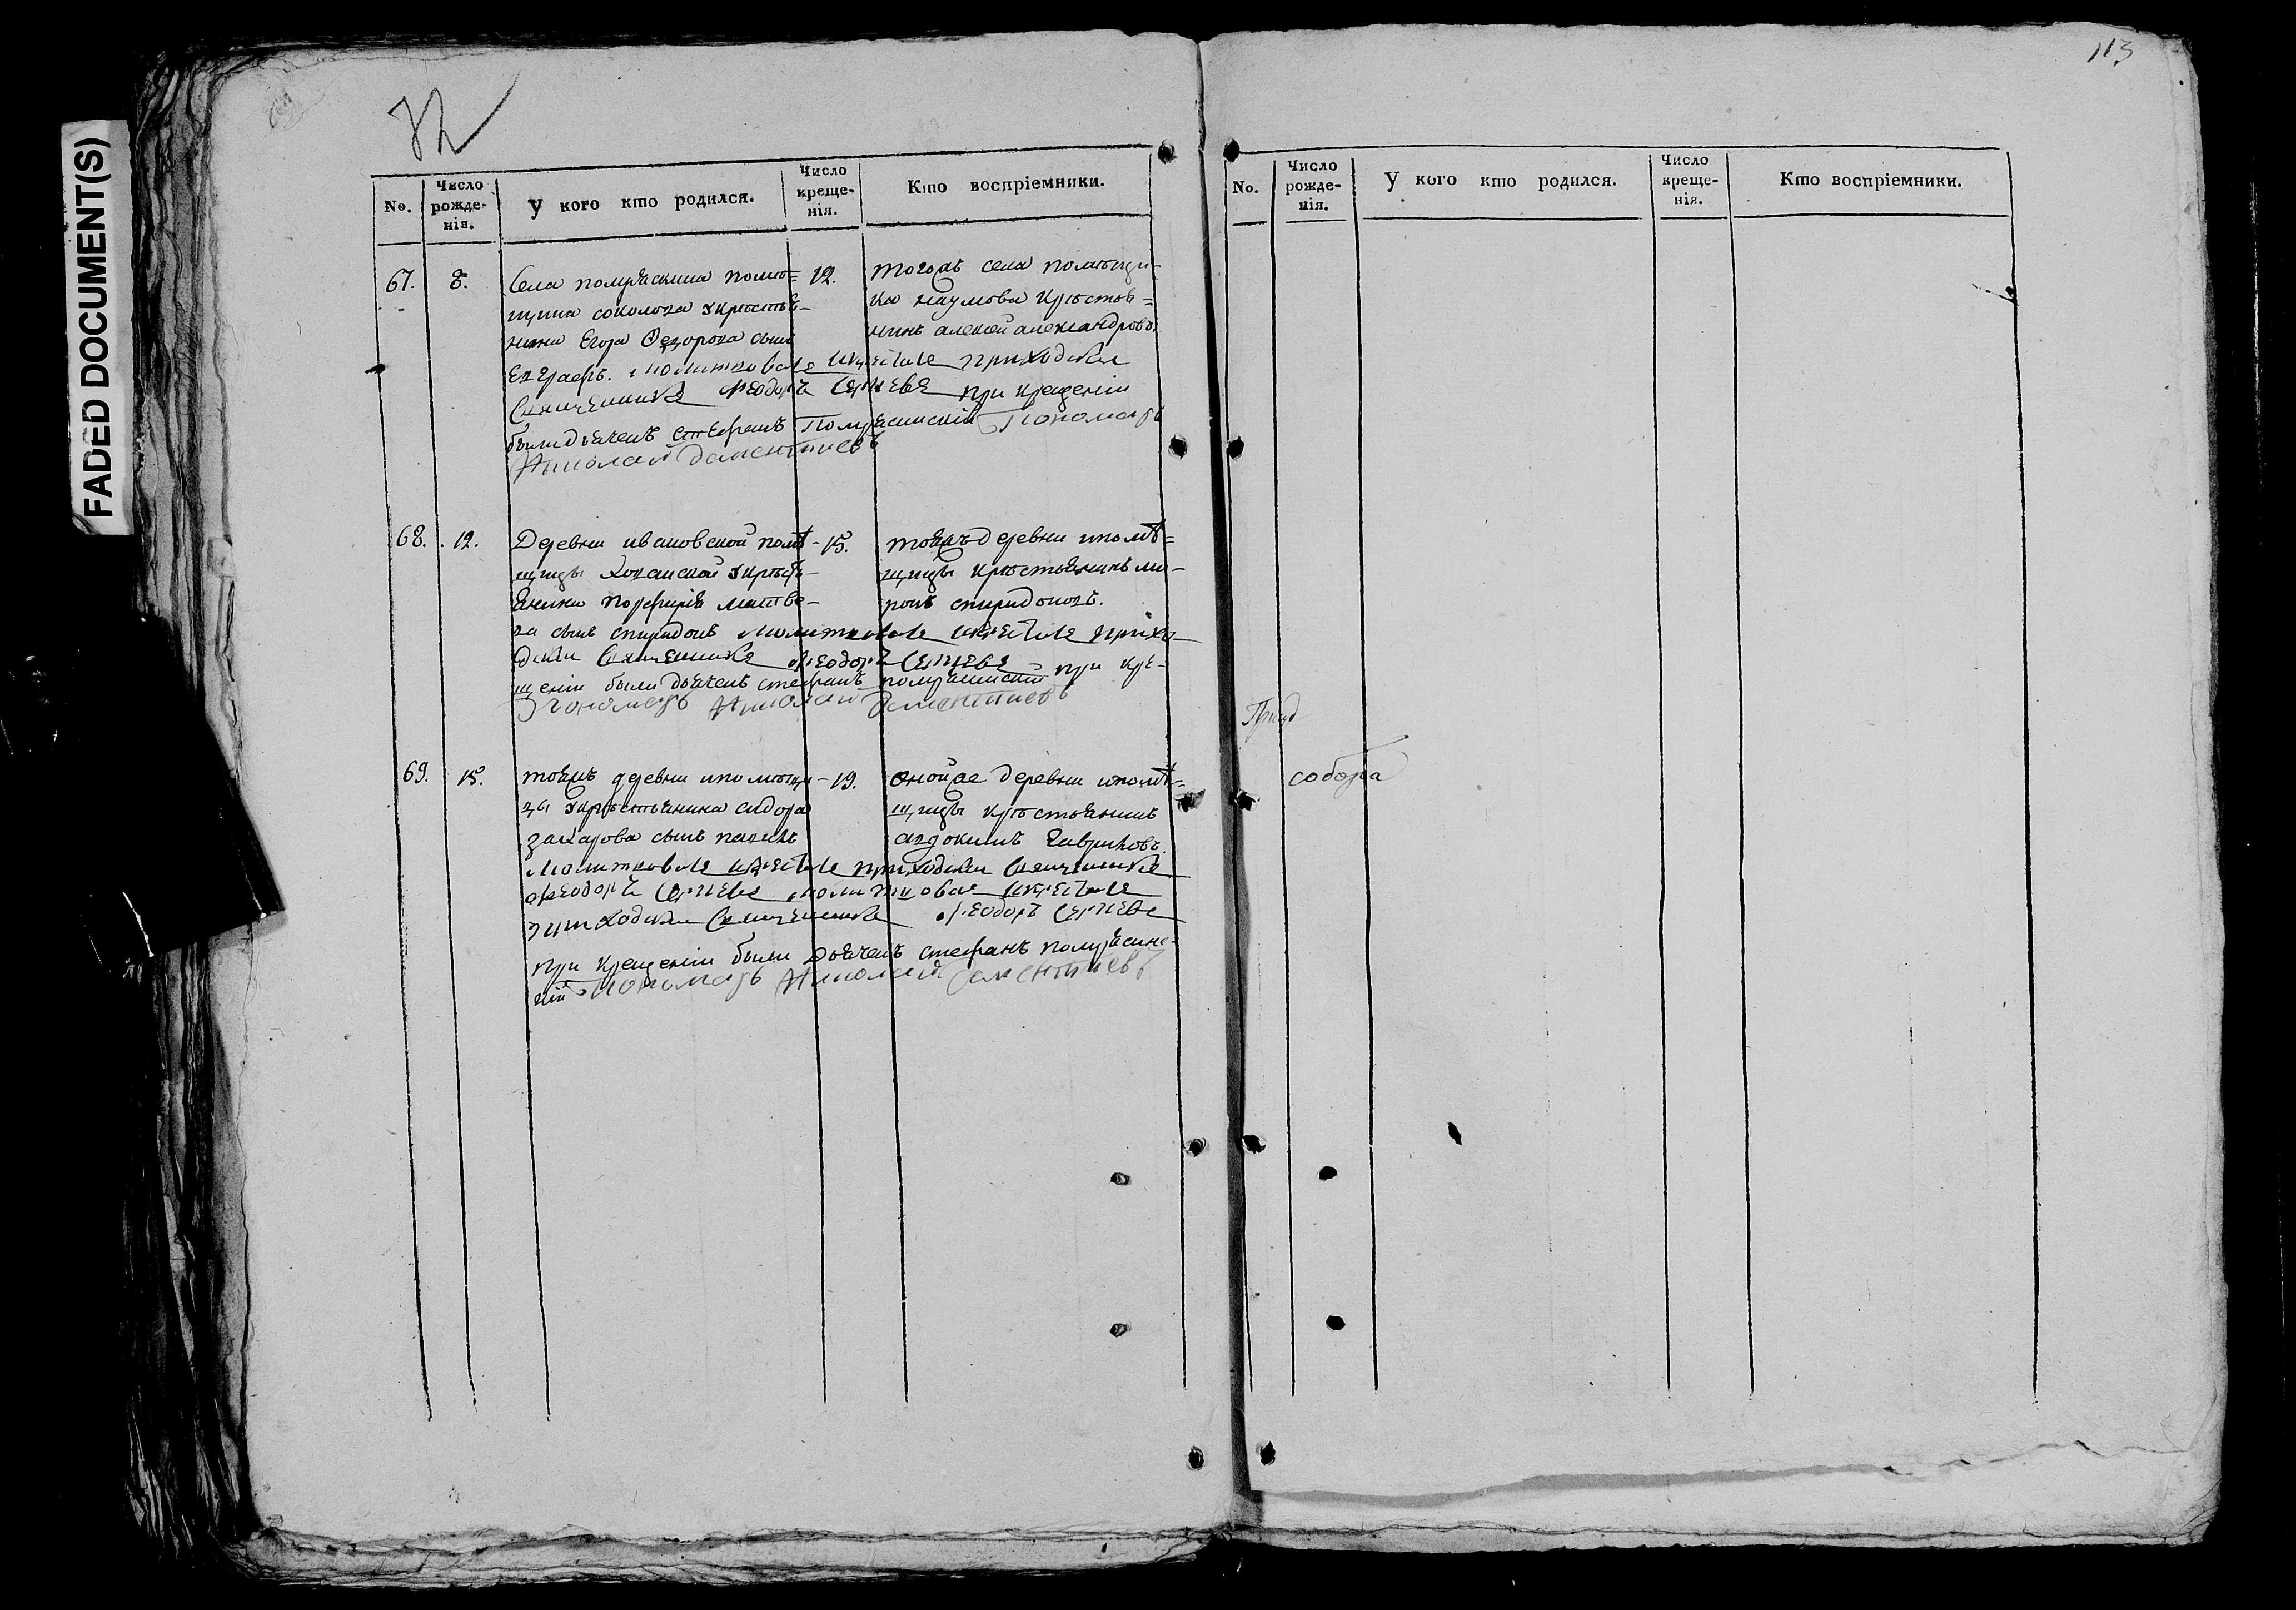 FADED DOCUMENT(S)
113
No.
Число рожде-нія.
У кого кто родился.
Число креще-нія.
Кто воспріемники.
67. 8.
Села полуяскина помѣ=
щика соколова укрестья-
нина Егора Ѳедорова сынъ
Евграфъ. Молитвовалъ икрестилъ приходскій
Священникъ Ѳеодоръ Сергіевъ При Крещеніи
были дьячекъ стефанъ Пономарь
Николай Дементіевъ
12.
тогожъ села помѣщи-
ка наумова Крестья=
нинъ алексѣй александровъ.
68. 12.
Деревни ивановской помѣ-
щицы укресть-
янина порфирія матве-
ва сынъ спиридонъ Молитвовалъ икрестилъ прихо-
дскій Священникъ Ѳеодоръ Сергіевъ при кре-
щеніи были дьячекъ стефанъ
Пономарь Николай Дементіевъ
15.
тояжъ деревни ипомѣ=
щицы крестьянинъ ми-
ронъ спиридоновъ.
69. 15.
тояжъ деревни ипомѣщи-
цы укрестьянина сидора
захарова сынъ
Молитвовалъ икрестилъ приходскій Священникъ
Ѳеодоръ Сергіевъ молитвовалъ икрестилъ
приходскій Священникъ Ѳеодоръ Сергіевъ
при крещеніи были дьячекъ стефанъ
Пономарь Николай Дементіевъ
19.
онойже деревни ипомѣ=
щицы крестьянинъ
авдокимъ Гавриловъ.
No.
Число рожде-нія.
У кого кто родился.
Число креще-нія.
Кто воспріемники.
собора